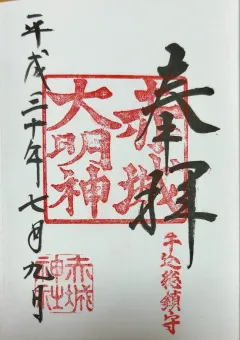 奉拝
牛込総鎮守
赤城
大明神
平成三十年七月九日
赤城
神社